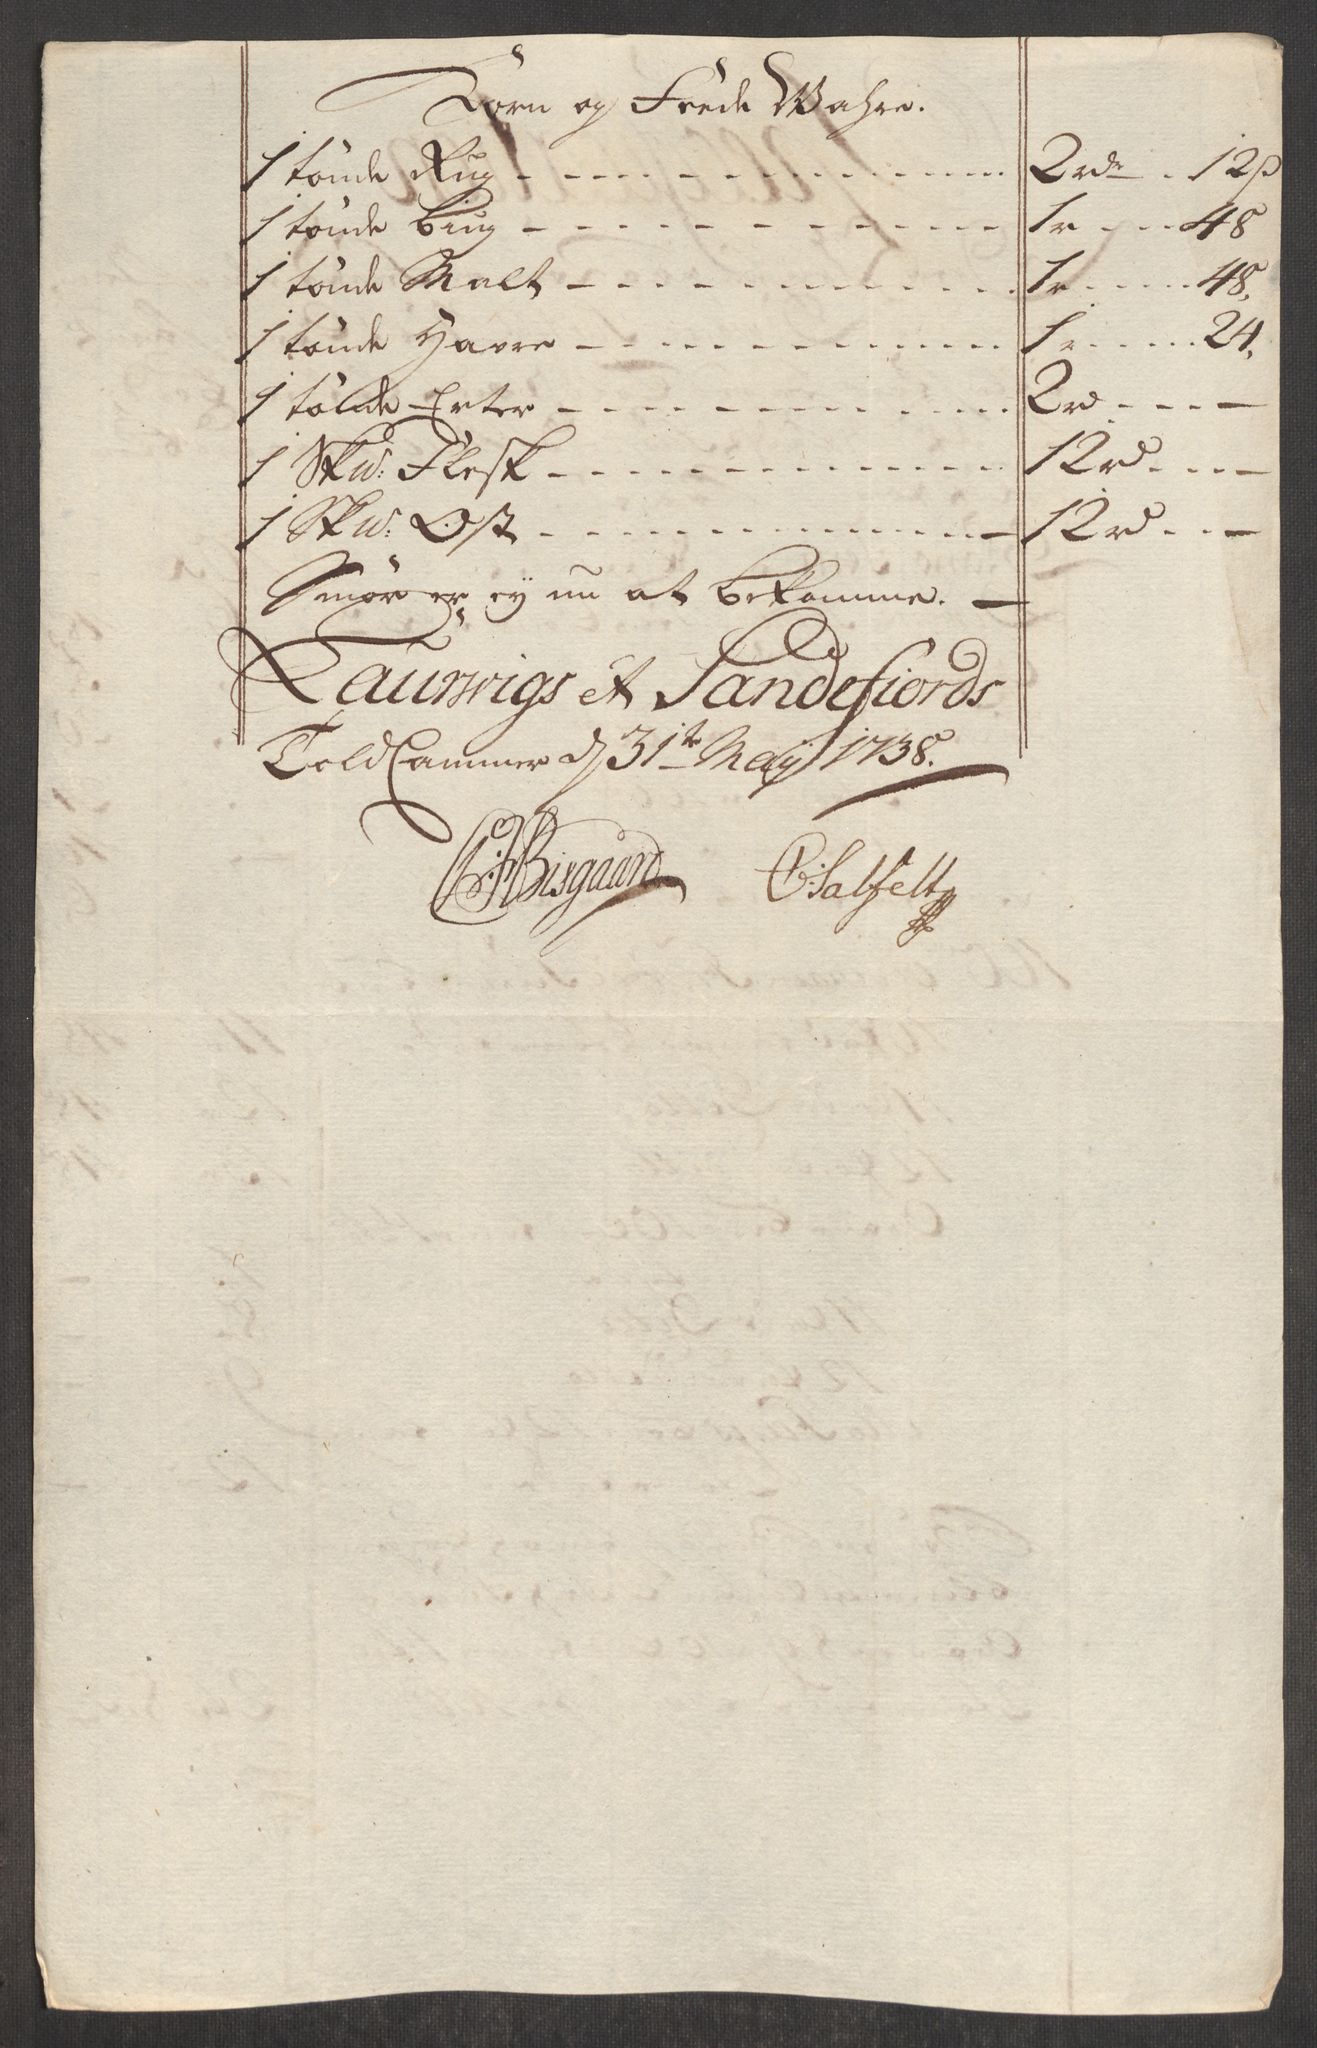 Korn og Feede Wahre.
1 tönde Rug - - - - - - - - - 2 rdr . 12 s
1 tönde biug - - - - - - - - - 1 r - - - 48
1 tönde Malt - - - - - - - - - 1 r - - - 48.
1 tönde Havre - - - - - - - - - 1 r - - - 24.
1 tönde Erter - - - - - - - - - 2 rd - - - -
1 Skw: Flesk - - - - - - - - - 12 rd - - -
1 Skw: Ost - - - - - - - - - 12 rd - - -
Smör er ey nu at bekomme. —
Laurwigs et Sandefiords
Told Cammer d 31te Maij 1738.
Bisgaard Salfelt